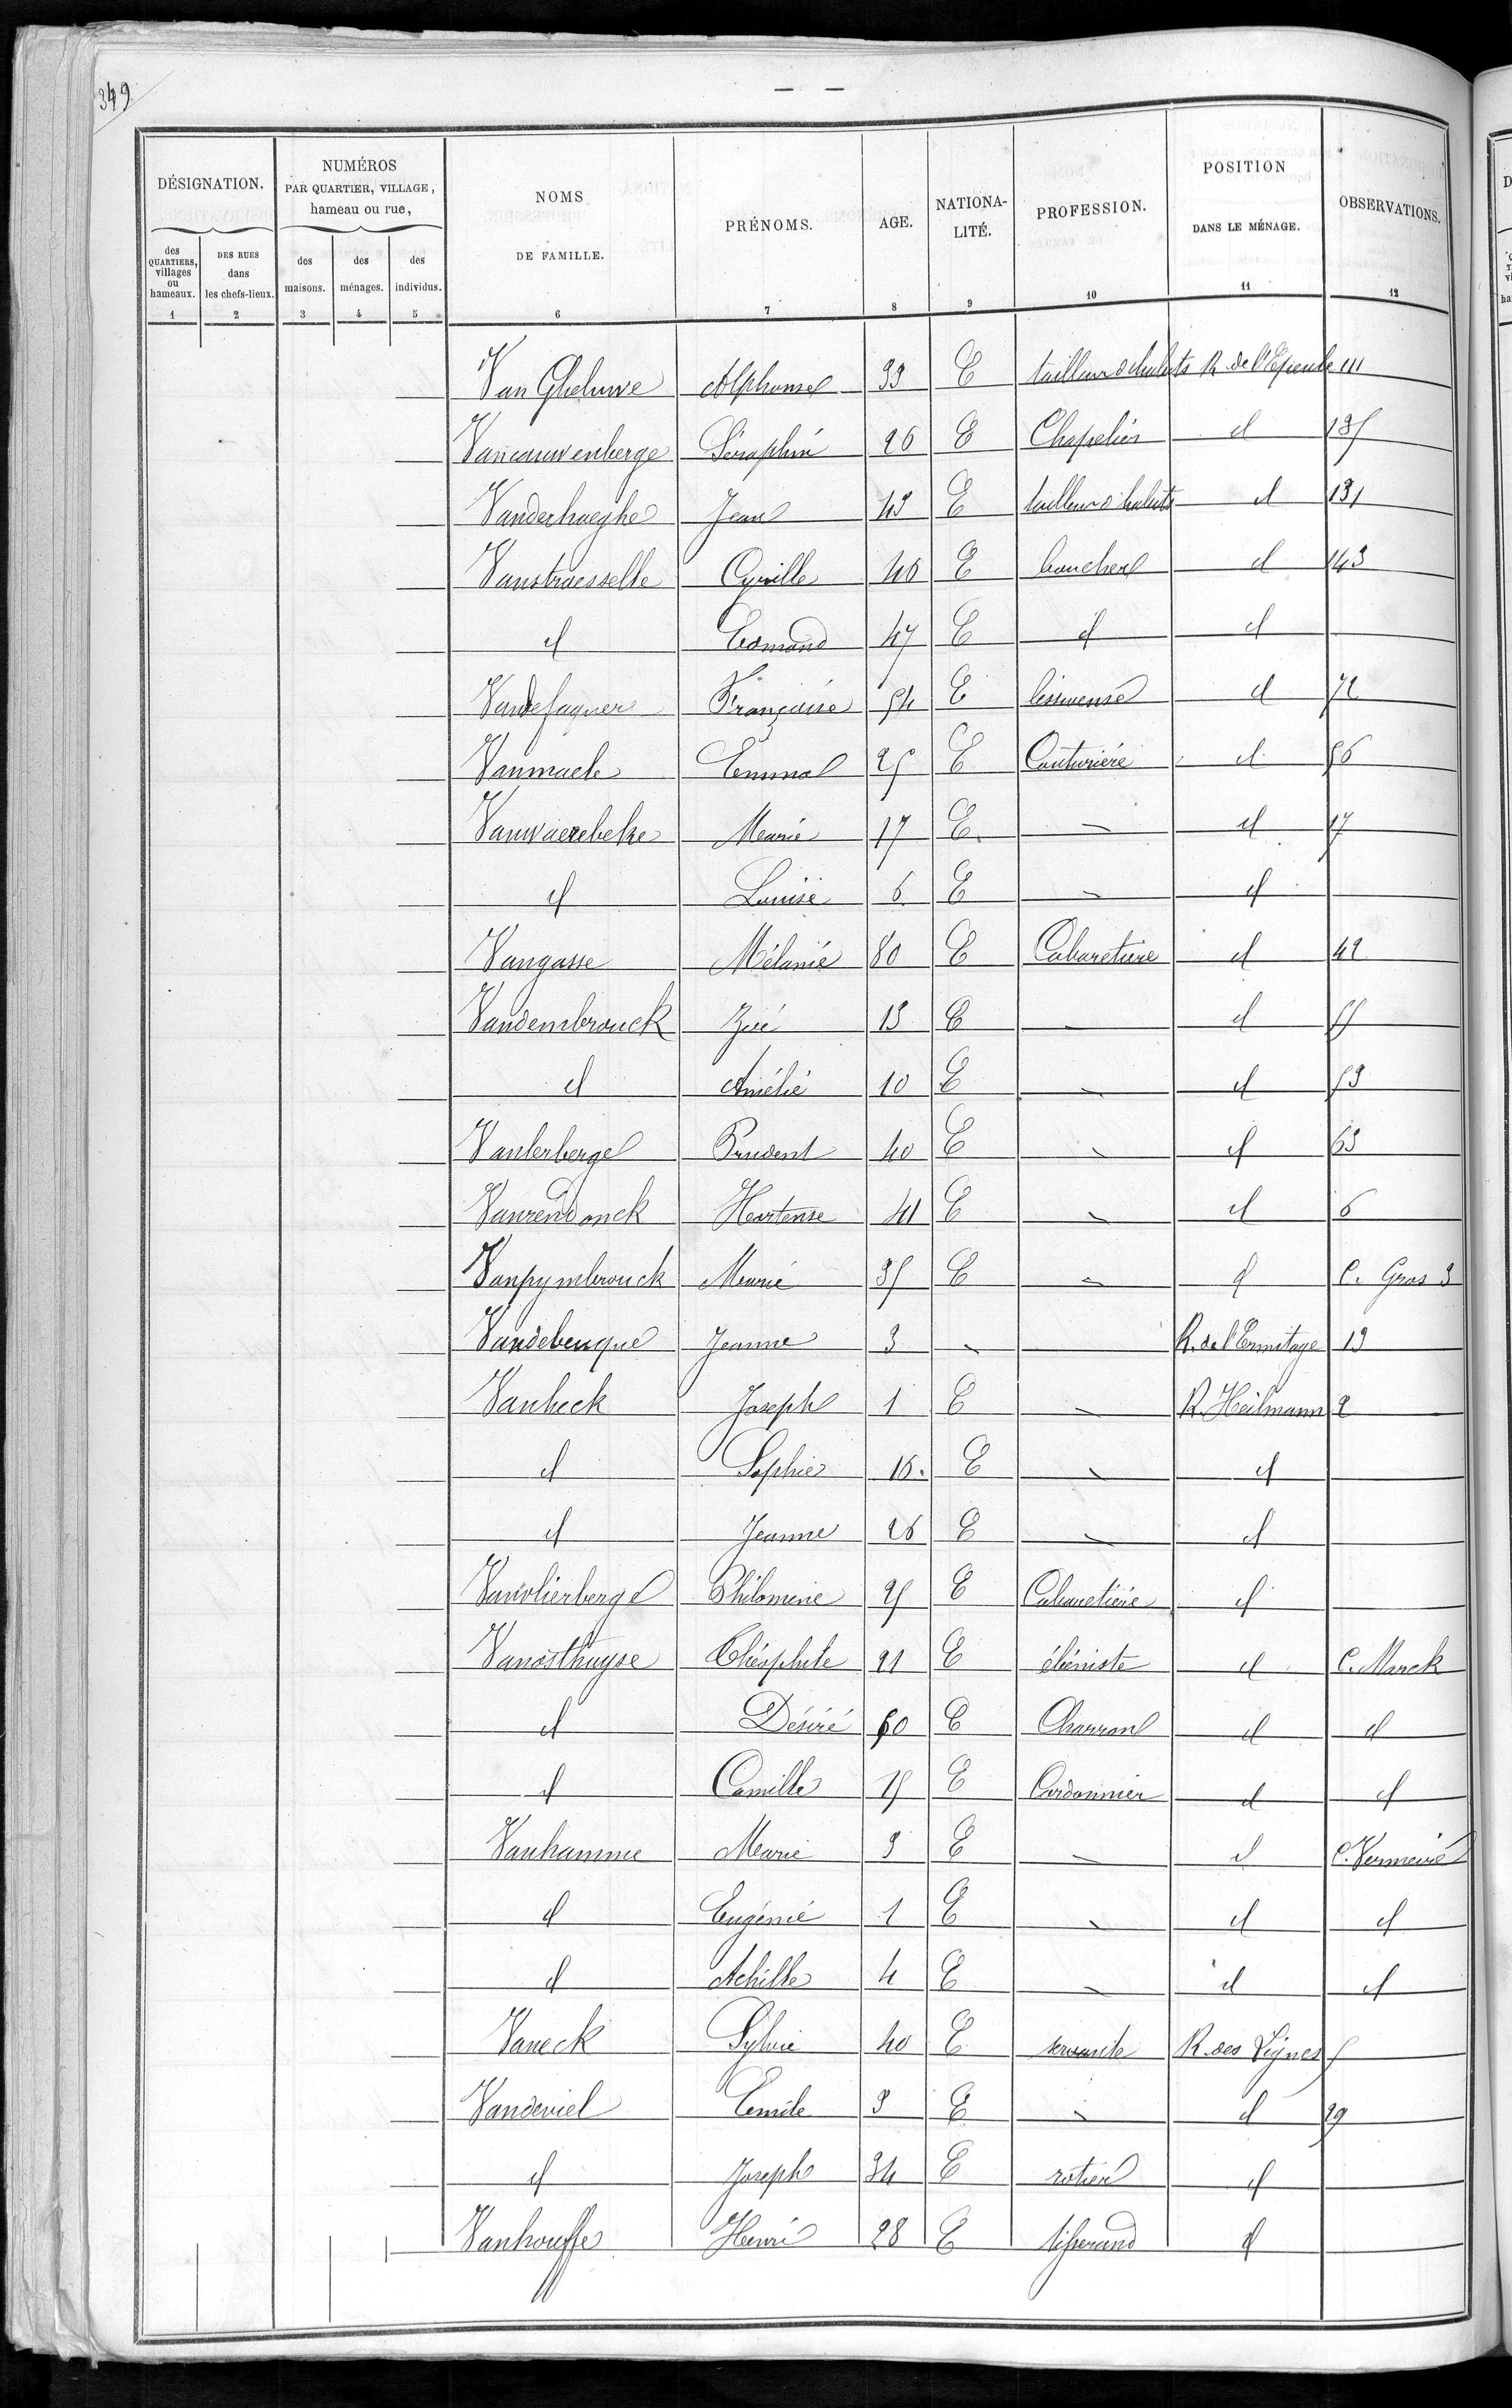 349
DÉSIGNATION.
NUMÉROS
PAR QUARTIER, VILLAGE,
hameau ou rue,
NOMS
DE FAMILLE.
PRÉNOMS.
AGE.
NATIONA-
LITÉ.
PROFESSION.
POSITION
DANS LE MÉNAGE.
OBSERVATIONS.
des QUARTIERS, villages ou hameaux.
DES RUES dans les chefs-lieux.
des maisons.
des ménages.
des individus.
1 2 3 4 5 6 7 8 9 10 11 12
Van Gheluwe Alphonse 33 E tailleur d'habits R. de l'Epeule 111
Vancauwenberge Séraphin 26 E Chapelier d 135
Vanderhaeghe Jean 43 E tailleur d'habits d 131
Vanstraesselle Cyrille 46 E boucher d 143
d Edmond 47 E d d
Vandefaquer Françoise 54 E lessiveuse d 72
Vanmaele Emma 25 E Couturière d 56
Vanwaerebeke Marie 17 E - d 17
d Louise 6 E - d
Vangasse Mélanie 80 E Cabaretière d 42
Vandembrouck Zoé 13 E - d 55
d Amélie 10 E - d 53
Vanlerberge Prudent 40 E - d 63
Vanrendonck Hortense 41 E - d 6
Vanpymbrouck Marie 35 E - d C. Gras 3
Vandebeuque Jeanne 3 - R. de l'Ermitage 13
Vanheck Joseph 1 E - R. Heilmann 2
d Sophie 16 E - d
d Jeanne 26 E - d
Vanvlierberge Philomène 25 E Cabaretière d
Vanosthuyse Théophile 21 E ébéniste d C. Marck
d Désiré 60 E Charron d d
d Camille 15 E Cordonnier d d
Vanhamme Marie 9 E - d C. Vermeire
d Eugénie 1 E - d d
d Achille 4 E - d d
Vaneck Sylvie 40 E servante R. des Vignes 5
Vandeviel Emile 3 E - d 29
d Joseph 34 E rotier d
Vanhouffe Henri 28 E tisserand d